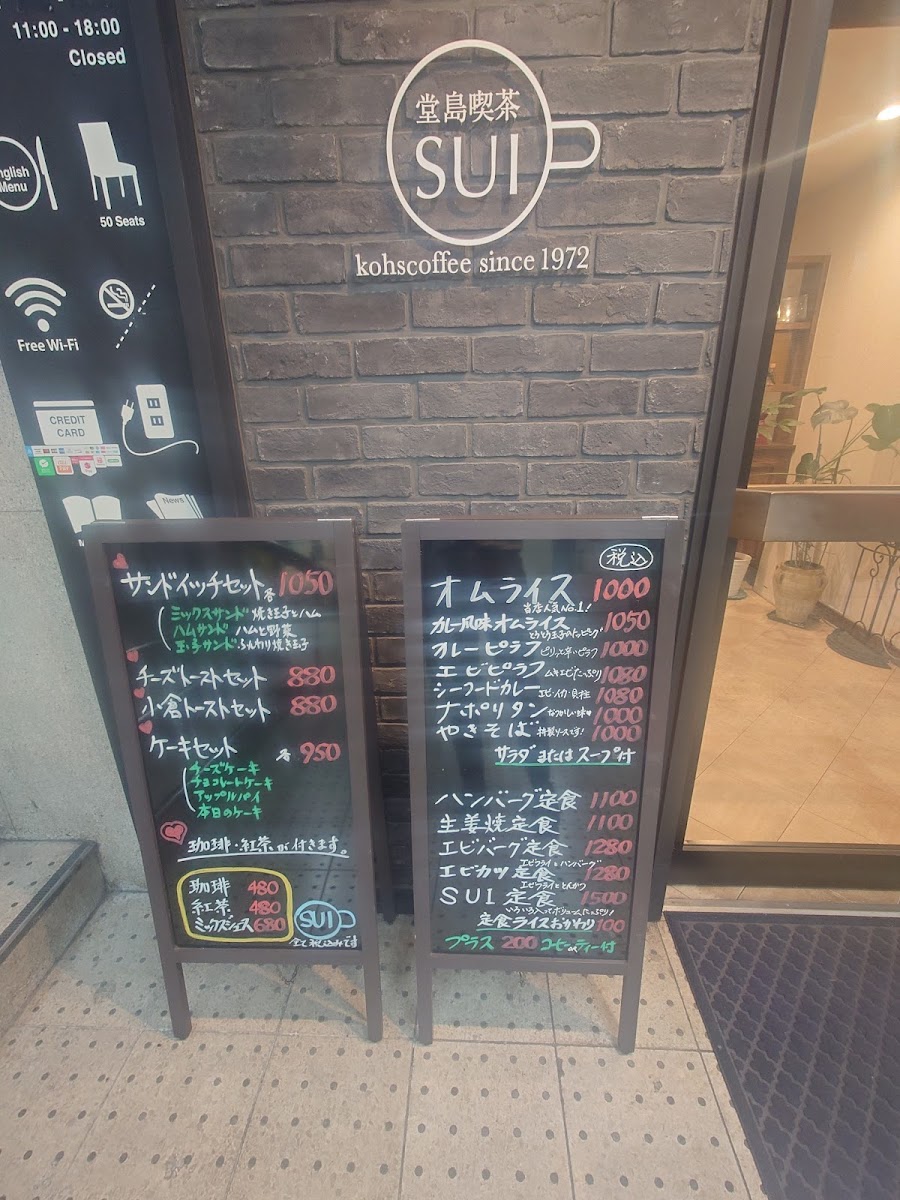 11:00 - 18:00
Closed
English
Menu
50 Seats
Free Wi-Fi
CREDIT
CARD
News
堂島喫茶
SUI
kohscoffee since 1972
サンドイッチセット 各 1050
ミックスサンド 焼き玉子とハム
ハムサンド ハムと野菜
玉子サンド ふんわり焼き玉子
チーズトーストセット 880
小倉トーストセット 880
ケーキセット 各 950
チーズケーキ
チョコレートケーキ
アップルパイ
本日のケーキ
珈琲・紅茶が付きます。
珈琲 480
紅茶 480
ミックスジュース 680
SUI
全て税込みです
税込
オムライス 1000
当店人気No.1!
カレー風味オムライス 1050
とろとろ玉子のトッピング
カレーピラフ ピリッと辛いピラフ 1000
エビピラフ ムキエビたっぷり 1080
シーフードカレー エビ・イカ・貝柱 1080
ナポリタン なつかしい味 1000
やきそば 特製ソースです! 1000
サラダまたはスープ付
ハンバーグ定食 1100
生姜焼定食 1100
エビバーグ定食 1280
エビフライとハンバーグ
エビカツ定食 1280
エビフライととんかつ
SUI定食 1500
いろいろ入ってボリュームたっぷり!
定食ライスおかわり 100
プラス 200 コーヒーorティー付